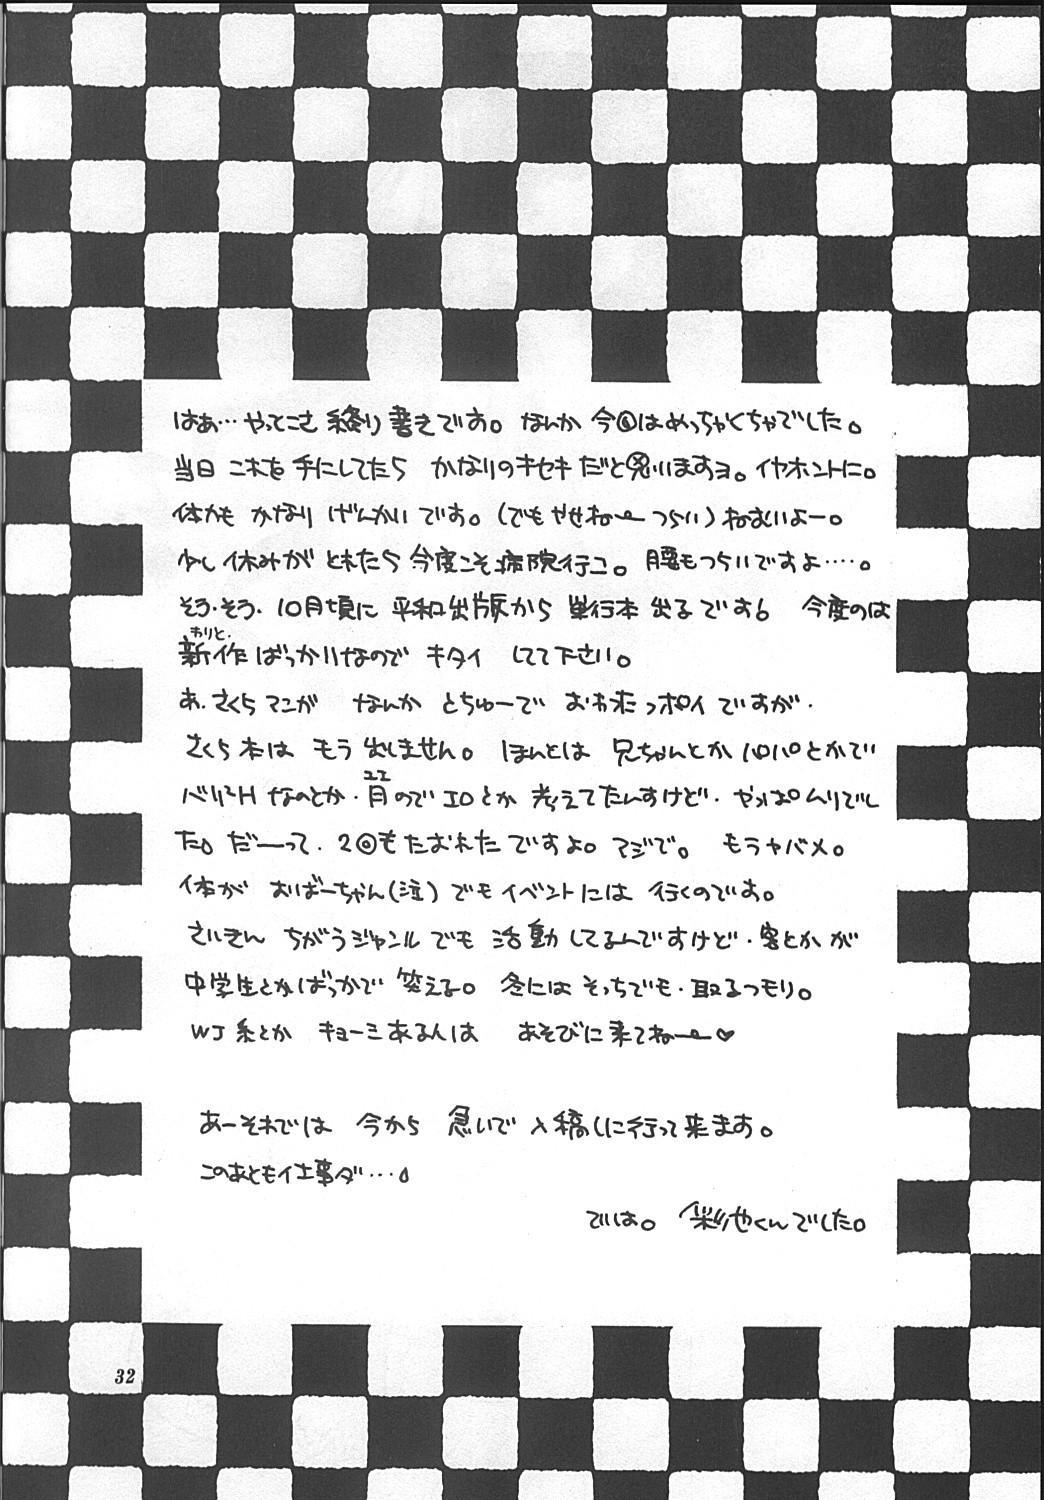 はあ…やってこさ 終り書きです。なんか 今回はめっちゃくちゃでした。
当日 これを手にしてたら かなりのキセキだと思いますヨ。イヤホントに。
体力も かなり げんかいです。(でもやせねー つらい)ねむいよー。
少し休みが とれたら今度こそ病院行こ。腰もつらいですよ…‥。
そう・そう・10月頃に 平和出版から 単行本出るです。今度のは
わりと・
新作ばっかりなので キタイ してて下さい。
あ、さくらマンガ なんか とちゅーで おわたっポイですが・
さくら本は もう出しません。ほんとは 兄ちゃんとかパパとかで
ユエ
ベリーH なのとか・月のでエロとか 考えてたんすけど・やっぱムリでし
た。だーって・2回もたおれたですよ。マジで。 もうヤバメ。
体が おばーちゃん(泣)でもイベントには 行くのです。
さいきん ちがうジャンルでも 活動してるんですけど・客とかが
中学生とかばっかで 笑える。冬には そっちでも・取るつもり。
WJ系とか キョーミあるんは あそびに来てねー♡
あーそれでは 今から 急いで 入稿しに行って来ます。
このあともイ士事ダ…。
では。 彩池くんでした。
32